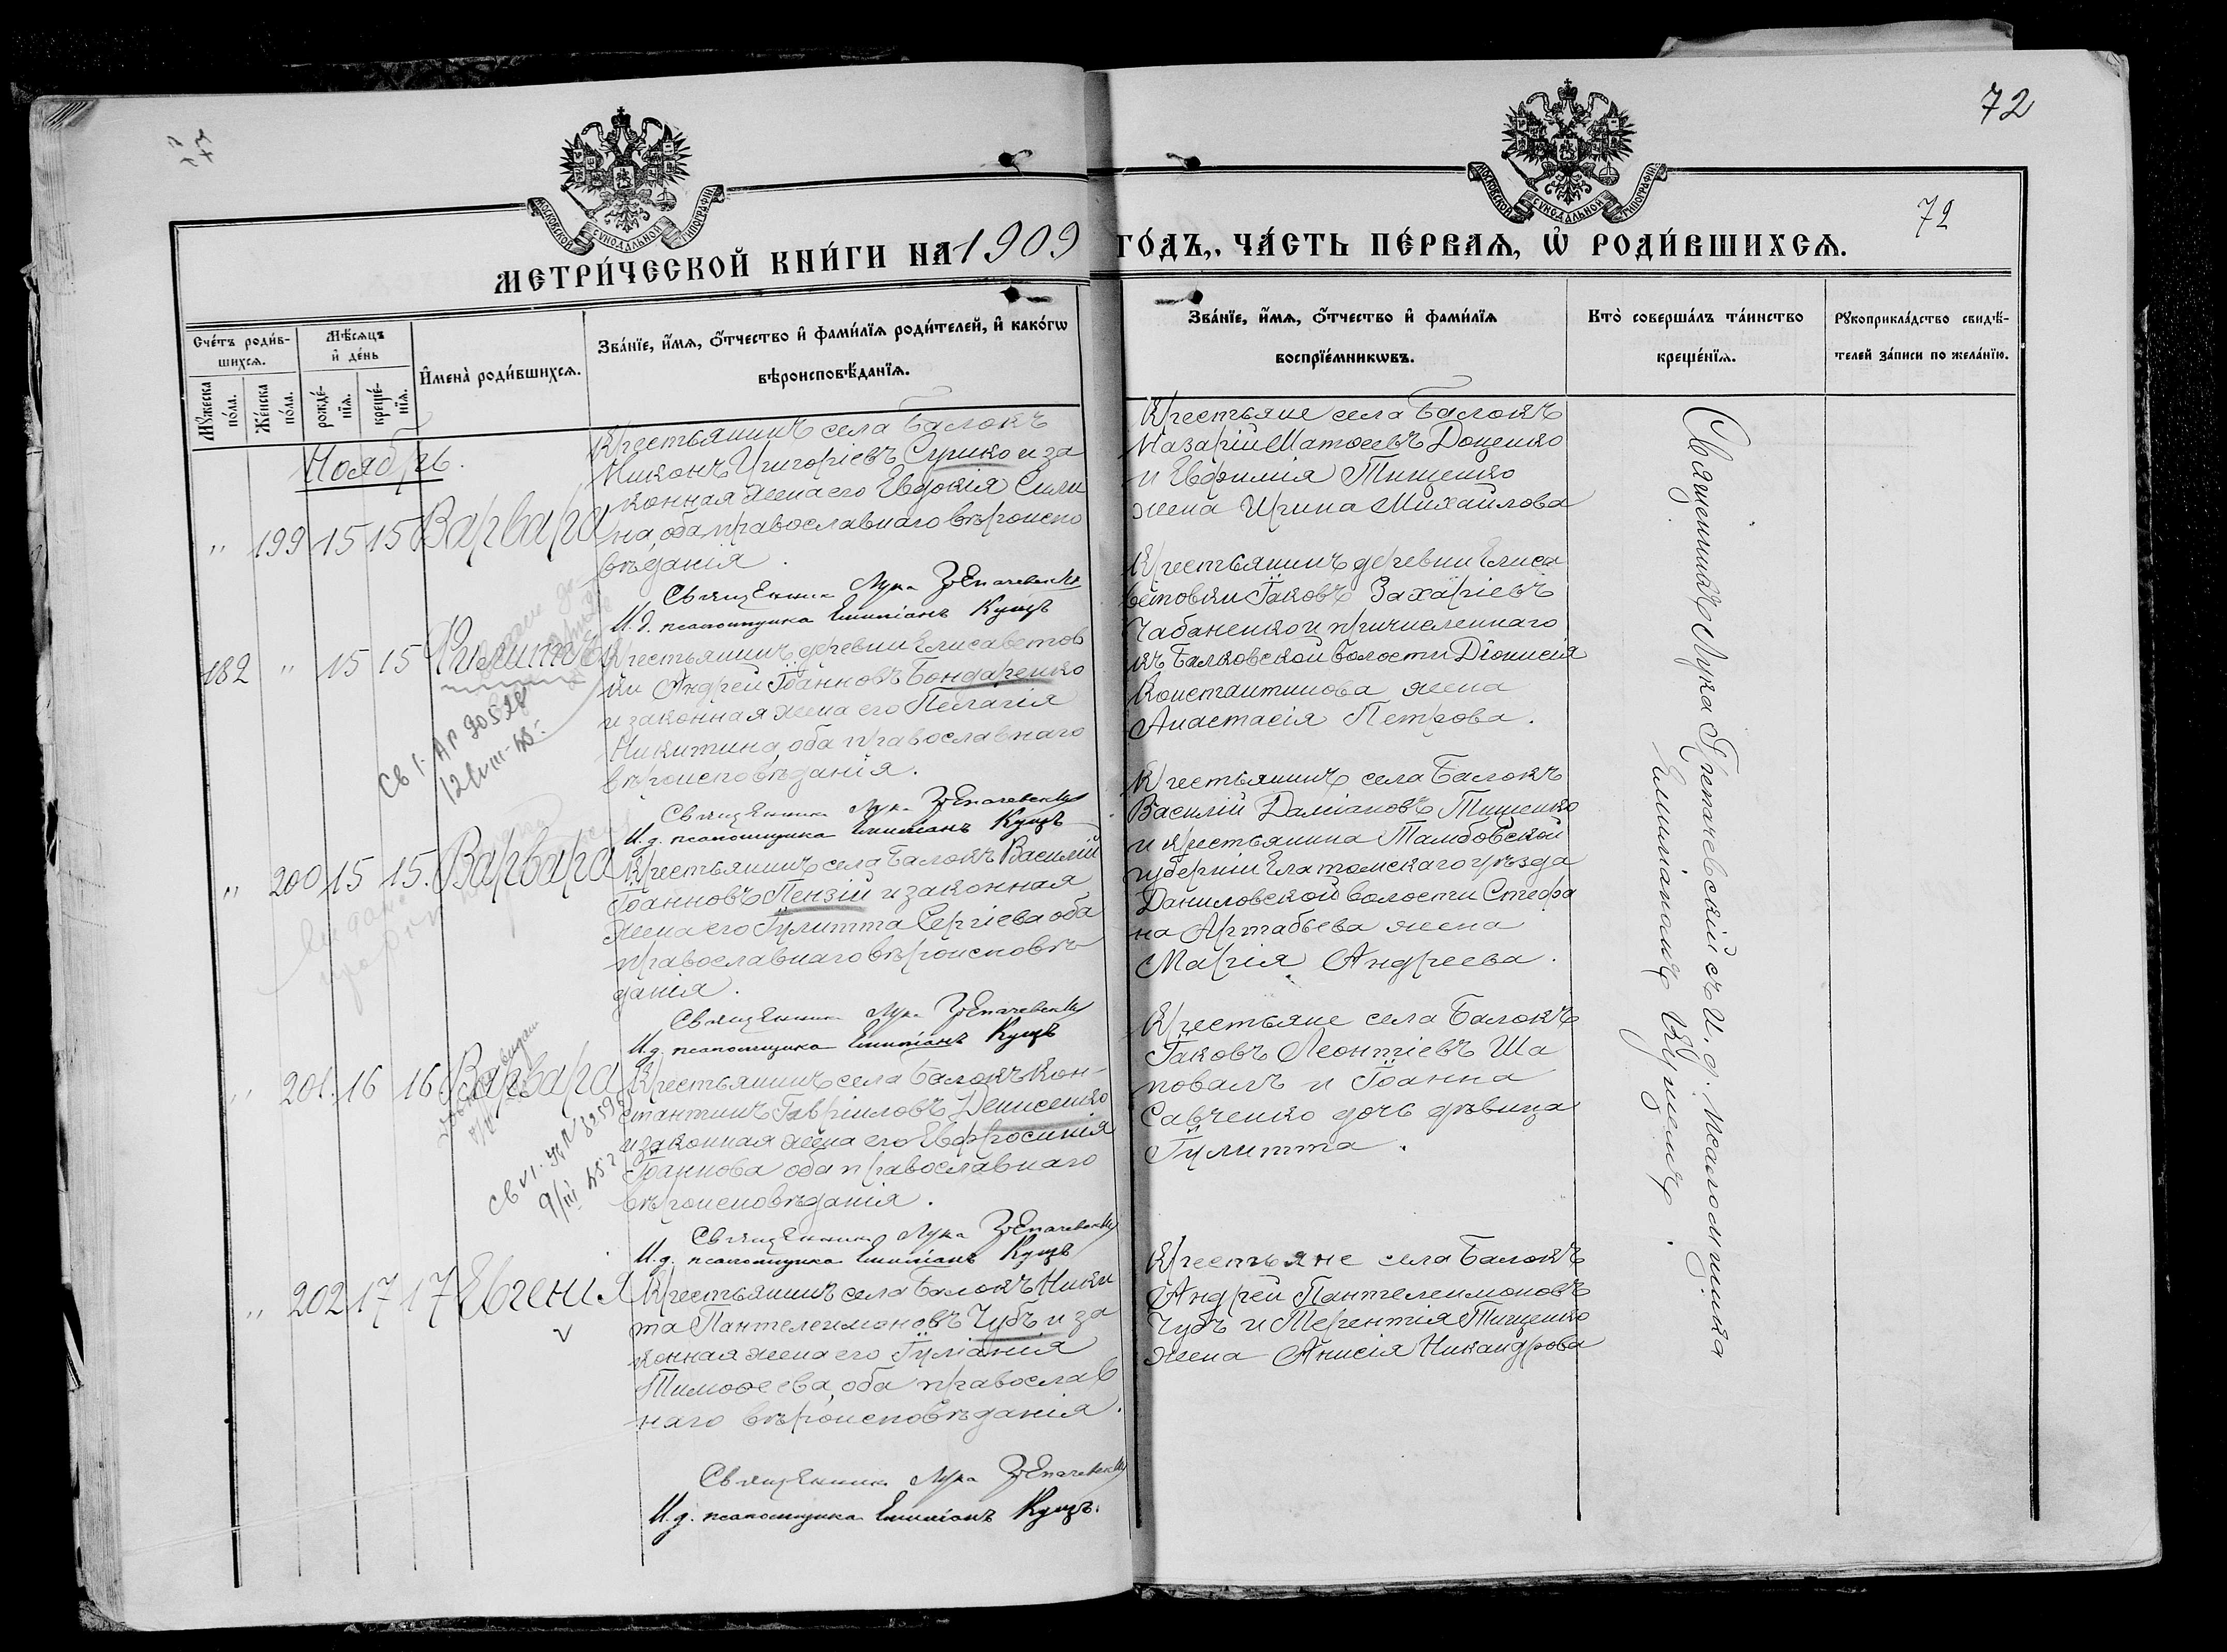 72
72
МОСКОВСКОЙ СѴНОДАЛЬНОЙ ТИПОГРАФІИ
МОСКОВСКОЙ СѴНОДАЛЬНОЙ ТИПОГРАФІИ
МЕТРИ́ЧЕСКОЙ КНИ́ГИ НА 1909 ГО́ДЪ, ЧА́СТЬ ПЕ́РВАѦ, Ѡ҆ РОДИ́ВШИХСѦ.
Сче́тъ роди́в-
шихсѧ.
Мꙋ́жеска по́ла.
Же́нска по́ла.
Мѣ́сѧцъ
и҆ де́нь
рожде́-
нїѧ.
креще́-
нїѧ.
И҆мена̀ роди́вшихсѧ.
Зва́нїе, и҆́мѧ, ѻ҆́тчество и҆ фами́лїѧ роди́телей, и҆ како́гѡ
вѣроисповѣ́данїѧ.
Зва́нїе, и҆́мѧ, ѻ҆́тчество и҆ фами́лїѧ
воспрїе́мникѡвъ.
Кто̀ соверша́лъ та́инство
креще́нїѧ.
Рꙋкоприкла́дство свидѣ́-
телей за́писи по жела́нїю.
Ноябрь.
" 199 15 15 Варвара
Крестьянинъ села Балокъ
Никонъ Григоріевъ Сушко и за
конная жена его Евдокія Сили
на, оба православнаго вѣроиспо
вѣданія.
Священникъ Лука Грепачевскій
И. д. псаломщика Емиліанъ Кущъ
Крестьяне села Балокъ
Назарій Матѳеевъ Доценко
и Евфимія Тищенко
жена Ирина Михайлова
182 " 15 15 Филиппъ
Крестьянинъ деревни Елисаветов
ки Андрей Іоанновъ Бондаренко
и законная жена его Пелагія
Никитина, оба православнаго
вѣроисповѣданія.
Священникъ Лука Грепачевскій
И. д. псаломщика Емиліанъ Кущъ
Крестьянинъ деревни Елиса
ветовки Іаковъ Захаріевъ
Чабаненко и причисленнаго
къ Балковской волости Діонисія
Константинова жена
Анастасія Петрова.
" 200 15 15. Варвара
Крестьянинъ села Балокъ Василій
Іоанновъ Пензій и законная
жена его Іулитта Сергіева оба
православнаго вѣроисповѣ
данія.
Священникъ Лука Грепачевскій
И. д. псаломщика Емиліанъ Кущъ
Крестьянинъ села Балокъ
Василій Даміановъ Тищенко
и крестьянина Тамбовской
губерніи Елатомскаго уѣзда
Даниловской волости Стефа
на Артабьева жена
Марія Андреева.
" 201. 16 16 Варвара
Крестьянинъ села Балокъ Кон-
стантинъ Гавріиловъ Денисенко
и законная жена его Евфросинія
Іоаннова оба православнаго
вѣроисповѣданія.
Священникъ Лука Грепачевскій
И. д. псаломщика Емиліанъ Кущъ
Крестьяне села Балокъ
Іаковъ Леонтіевъ Ша
повалъ и Іоанна
Савченко дочь дѣвица
Іулитта.
" 202 17 17 Евгенія
Крестьянинъ села Балокъ Ники
та Пантелеимоновъ Чубъ и за
конная жена его Іуліанія
Тимоѳеева, оба православ
наго вѣроисповѣданія.
Священникъ Лука Грепачевскій
И. д. псаломщика Емиліанъ Кущъ.
Крестьяне села Балокъ
Андрей Пантелеимоновъ
Чубъ и Терентія Тищенко
жена Анисія Никандрова
Священникъ Лука Грепачевскій съ И. д. Псаломщика
Емиліаномъ Кущемъ.